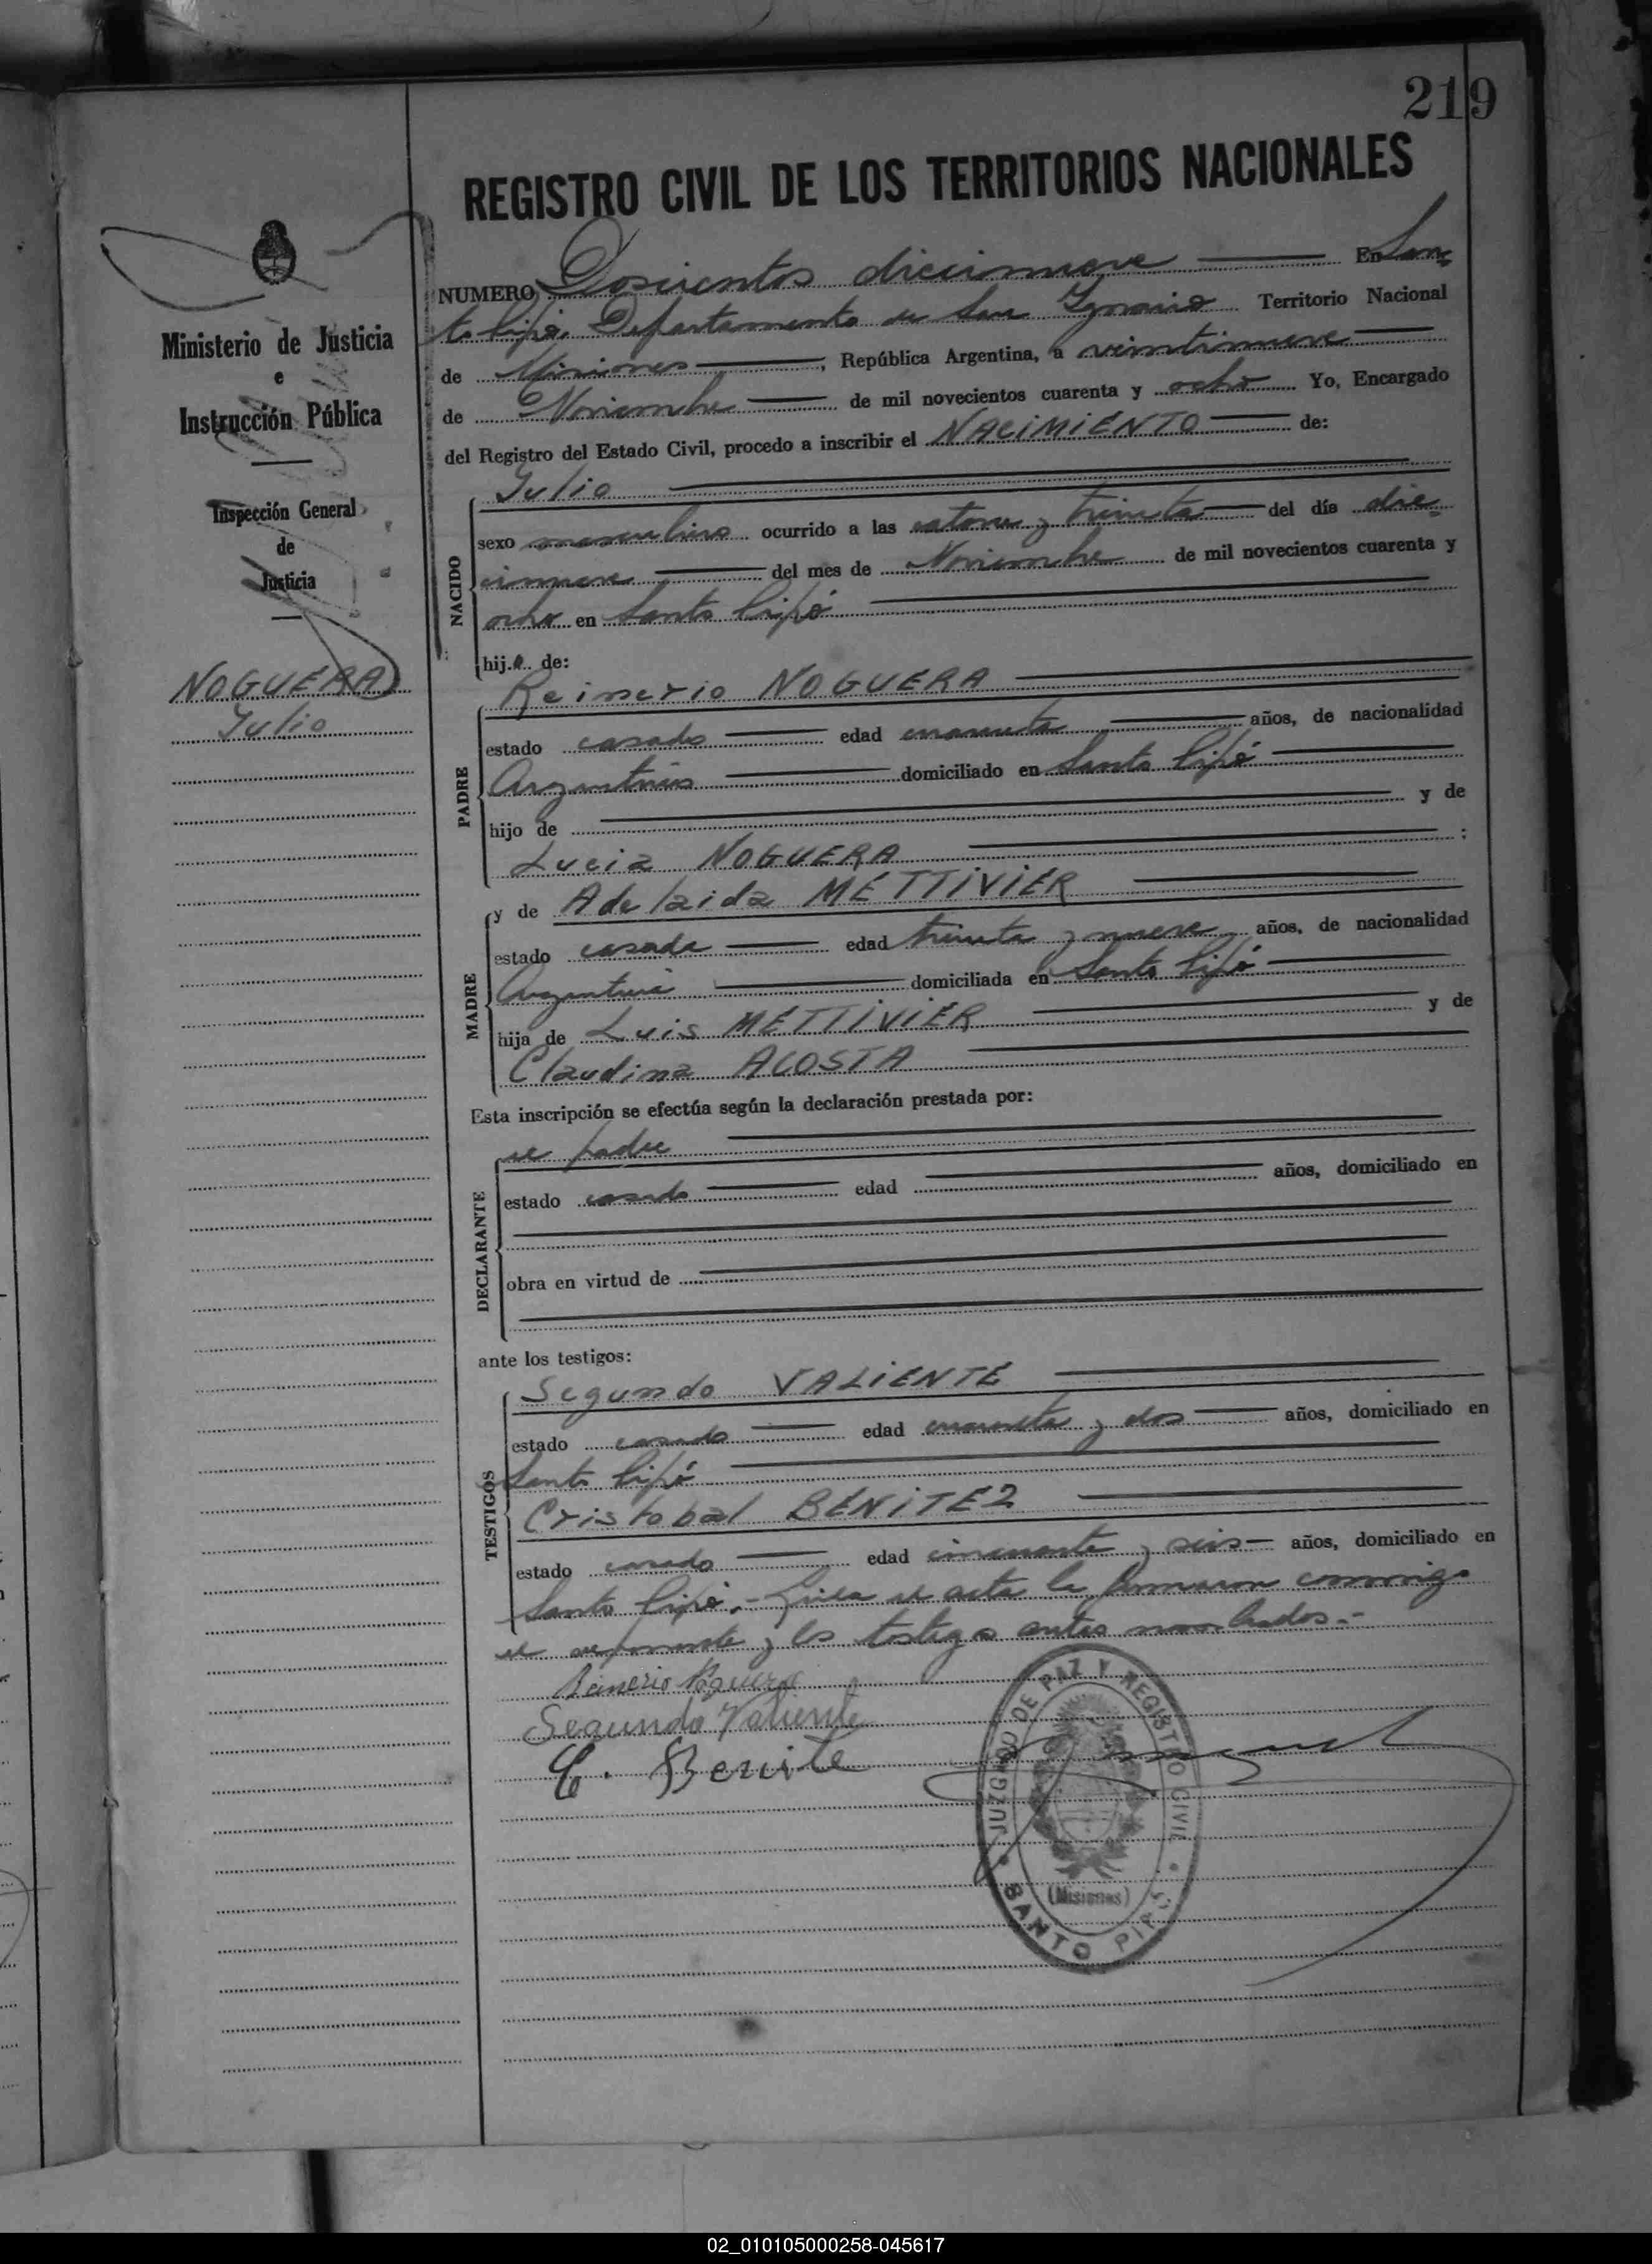 219
REGISTRO CIVIL DE LOS TERRITORIOS NACIONALES
Ministerio de Justicia
e
Instrucción Pública
Inspección General
de
Justicia
NOGUERA
Julio
NUMERO Doscientos diecinueve En San=
to Pipó, Departamento de San Ignacio Territorio Nacional
de Misiones, República Argentina, a veintinueve
de Noviembre de mil novecientos cuarenta y ocho Yo, Encargado
del Registro del Estado Civil, procedo a inscribir el NACIMIENTO de:
NACIDO
Julio
sexo masculino ocurrido a las catorce y treinta del día die=
cinueve del mes de Noviembre de mil novecientos cuarenta y
ocho en Santo Pipó
hij.o. de:
PADRE
Reinerio NOGUERA
estado casado edad cuarenta años, de nacionalidad
Argentino domiciliado en Santo Pipó
hijo de y de
Lucia NOGUERA :
MADRE
y de Adelaida METTIVIER
estado casada edad treinta y nueve años, de nacionalidad
Argentina domiciliada en Santo Pipó
hija de Luis METTIVIER y de
Claudina ACOSTA
Esta inscripción se efectúa según la declaración prestada por:
DECLARANTE
el padre
estado casado edad años, domiciliado en
obra en virtud de
ante los testigos:
TESTIGOS
Segundo VALIENTE
estado casado edad cuarenta y dos años, domiciliado en
Santo Pipó
Cristobal BENITEZ
estado casado edad cincuenta y seis años, domiciliado en
Santo Pipó.- Leida el acta la firmaron conmigo
el exponente y los testigos antes nombrados.-
Reinerio Noguera
Segundo Valiente
C. Benite
JUZGADO DE PAZ Y REGISTRO CIVIL
(Misiones)
SANTO PIPÓ
02_010105000258-045617